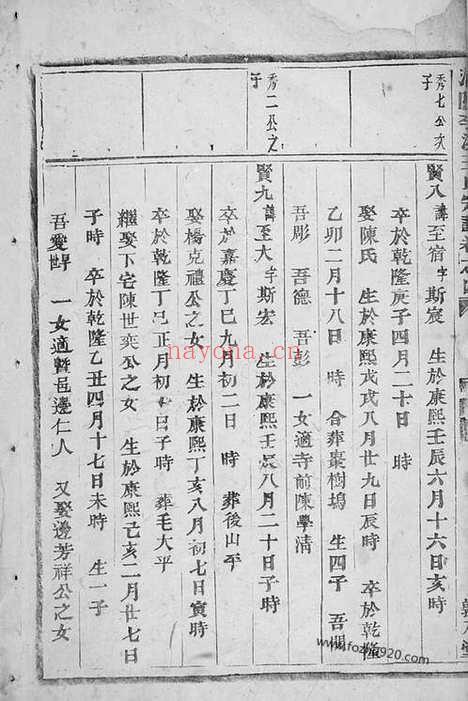 秀七公次
子
賢八諱至宿字斯宸　生於康熙壬辰六月十六日亥時
卒於乾隆庚子四月二十日　時
娶陳氏　生於康熙戊戌八月廿九日辰時　卒於乾隆
乙卯二月十八日　時　合葬棗樹塢　生四子　吾
吾彫　吾德　吾彭　一女適寺前陳學清
秀二公之
子
賢九諱至大字斯宏　生於康熙壬辰八月二十日子時
卒於嘉慶丁巳九月初二日　時　葬後山平
娶楊克禮公之女　生於康熙丁亥八月初七日寅時
卒於乾隆丁　正月初　日子時　葬毛大平
繼娶下宅陳世奕公之女　生於康熙己亥二月廿七日
子時　卒於乾隆乙丑四月十七日未時　生一子
吾愛　一女適暨邑邊仁人　又娶邊芳祥公之女
nayona.cn
www.fozhu920.com